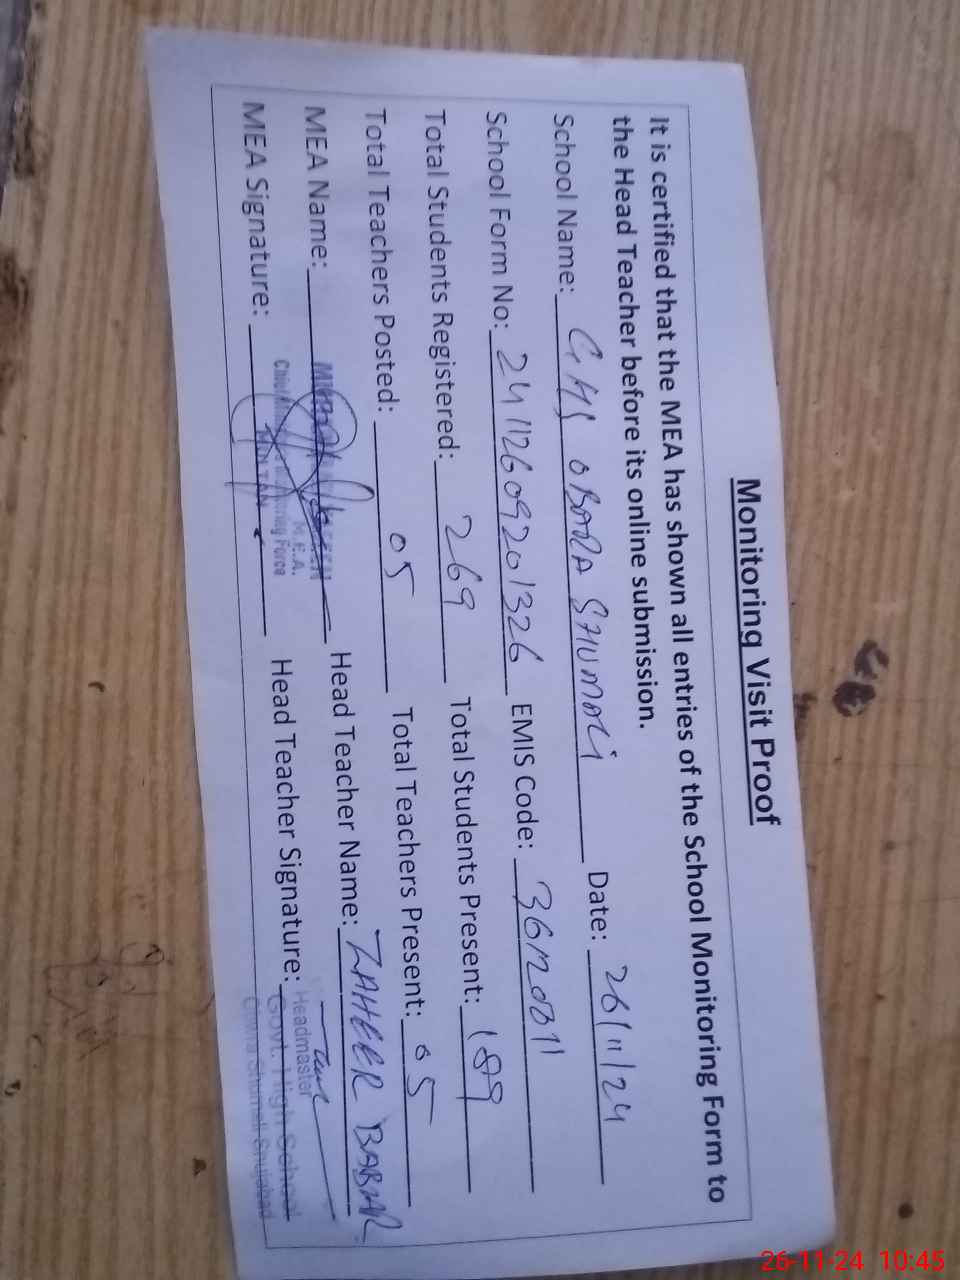 Monitoring Visit Proof
It is certified that the MEA has shown all entries of the School Monitoring Form to
the Head Teacher before its online submission.
School Name: GHS OBARA SHUMALI Date: 26/11/24
School Form No: 24112609201326 EMIS Code: 36120071
Total Students Registered: 269 Total Students Present: 189
Total Teachers Posted: 05 Total Teachers Present: 05
MEA Name: Head Teacher Name: ZAHEER BABAR
M.E.A.
MEA Signature: Head Teacher Signature:
Monitoring Force
MULTAN
Headmaster
Govt. High School
Shumali Shujabad
26-11-24 10:45